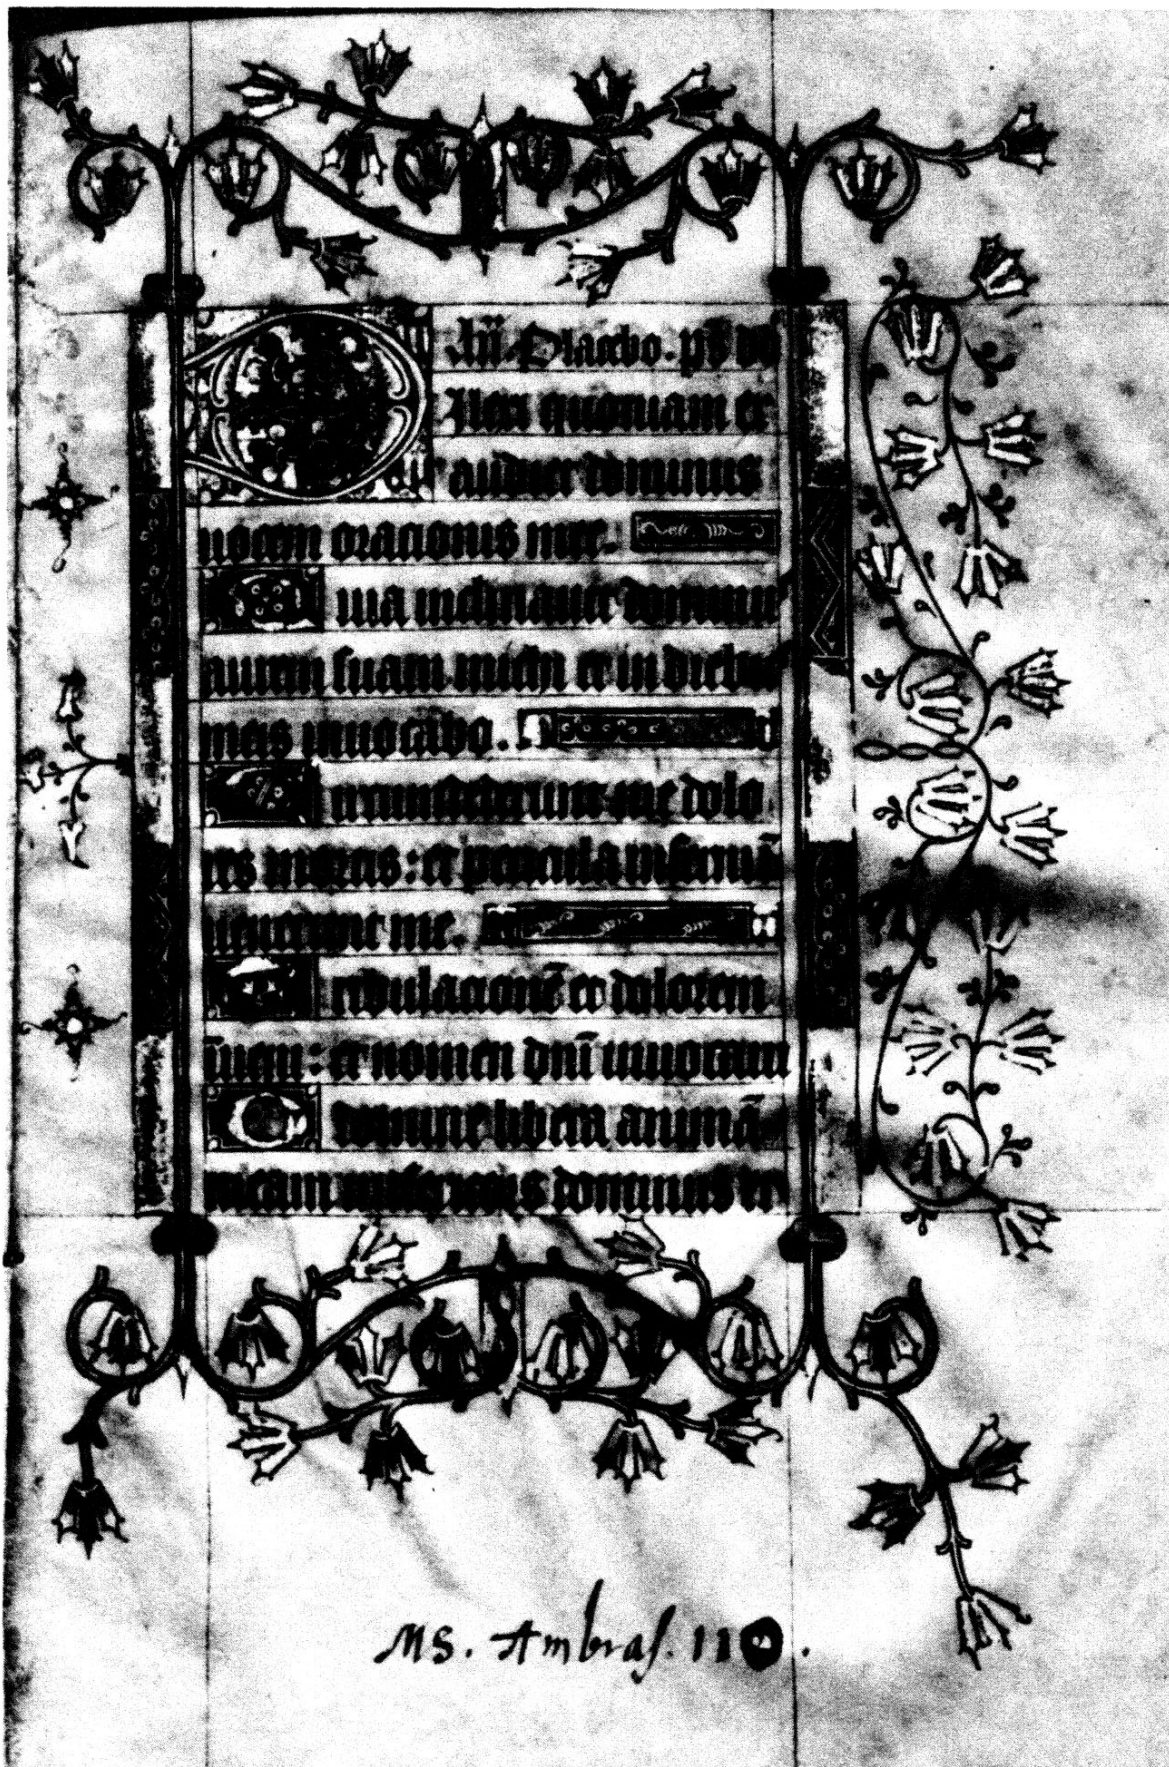 Añ. Placebo. ps̄ dd
Ilexi quoniam ex
audiet dominus
uocem oracionis mee.
Quia inclinauit dominus
aurem suam michi et in diebus
meis inuocabo.
Circumdederunt me dolo
res mortis: et pericula inferni
inuenerunt me.
Tribulacionē et dolorem
inueni: et nomen dn̄i inuocaui
O domine libera animā
meam misericors dominus et
MS. Ambras. 110.